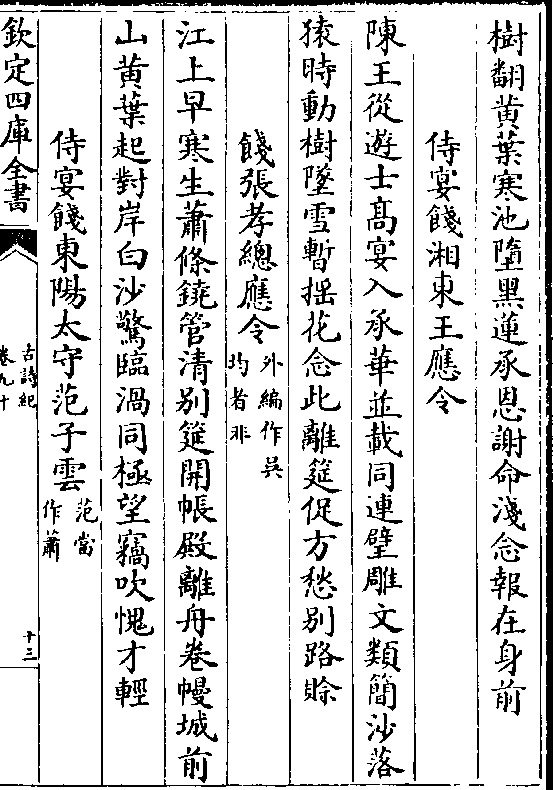 樹翻黄葉寒池墮黑蓮承恩謝命淺念報在身前
侍宴餞湘東王應令
陳王從遊士髙宴入承華並載同連璧雕文類簡沙落
猿時動樹墜雪暫揺花念此離筵促方愁别路賖
餞張孝總應令
外編作吳
均者非
江上早寒生蕭條鐃管清别筵開帳殿離舟巻幔城前
山黄葉起對岸白沙驚臨渦同極望竊吹愧才輕
侍宴餞東陽太守范子雲
范當
作蕭
欽定四庫全書
古詩紀
卷九十
十三